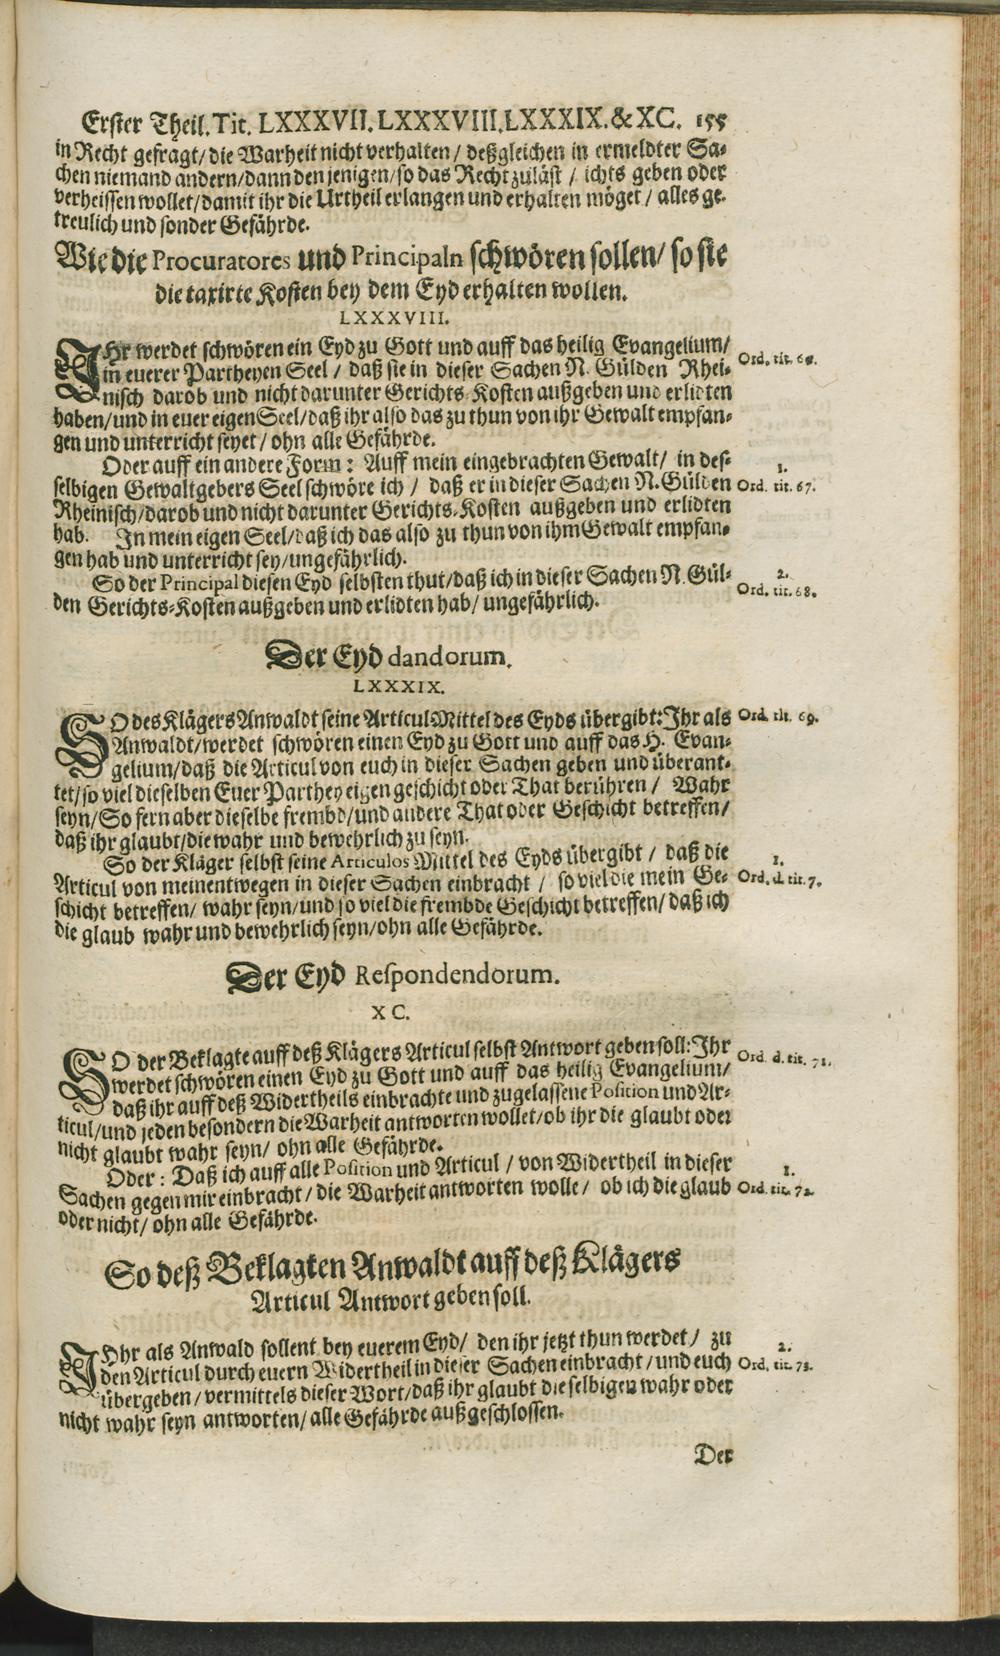 Erster Theil. Tit. LXXXVII. LXXXVIII. LXXXIX. & XC. 155
in Recht gefragt/ die Warheit nicht verhalten / deßgleichen in ermeldter Sa-
chen niemand andern/dann den jenigen/so das Recht zuläst / ichts geben oder
verheissen wollet/damit ihr die Urtheil erlangen und erhalten möget / alles ge-
treulich und sonder Gefährde.
Wie die Procuratores und Principaln schwören sollen/ so sie
die taxirte Kosten bey dem Eyd erhalten wollen.
LXXXVIII.
IHr werdet schwören ein Eyd zu Gott und auff das heilig Evangelium/
in euerer Partheyen Seel / daß sie in dieser Sachen N. Gülden Rhei-
nisch darob und nicht darunter Gerichts-Kosten außgeben und erlidten
haben/und in euer eigen Seel/daß ihr also das zu thun von ihr Gewalt empfan-
gen und unterricht seyet / ohn alle Gefährde.
Ord. tit.
Oder auff ein andere Form: Auff mein eingebrachten Gewalt/ in des-
selbigen Gewaltgebers Seel schwöre ich / daß er in dieser Sachen N. Gülden
Rheinisch/darob und nicht darunter Gerichts-Kosten außgeben und erlidten
hab. In mein eigen Seel/daß ich das also zu thun von ihm Gewalt empfan-
gen hab und unterricht sey/ungefährlich.
1.
Ord. tit. 67.
So der Principal diesen Eyd selbsten thut/daß ich in dieser Sachen N. Gül-
den Gerichts-Kosten außgeben und erlidten hab/ ungefährlich.
2.
Ord. tit. 68.
Der Eyd dandorum.
LXXXIX.
SO des Klägers Anwaldt seine Articul Mittel des Eyds übergibt: Ihr als
Anwaldt/werdet schwören einen Eyd zu Gott und auff das H. Evan-
gelium/daß die Articul von euch in dieser Sachen geben und überant-
tet/so viel dieselben Euer Parthey eigen geschicht oder That berühren / Wahr
seyn/So fern aber dieselbe frembd/und andere That oder Geschicht betreffen/
daß ihr glaubt/die wahr und bewehrlich zu seyn.
Ord. tit. 69.
So der Kläger selbst seine Articulos Mittel des Eyds übergibt / daß die
Articul von meinentwegen in dieser Sachen einbracht / so viel die mein Ge-
schicht betreffen/ wahr seyn/und so viel die frembde Geschicht betreffen/ daß ich
die glaub wahr und bewehrlich seyn/ohn alle Gefährde.
1.
Ord. d. tit. 7.
Der Eyd Respondendorum.
XC.
SO der Beklagte auff deß Klägers Articul selbst Antwort geben soll: Ihr
werdet schwören einen Eyd zu Gott und auff das heilig Evangelium/
daß ihr auff deß Widertheils einbrachte und zugelassene Position und Ar-
ticul/und jeden besondern die Warheit antworten wollet/ob ihr die glaubt oder
nicht glaubt wahr seyn/ ohn alle Gefährde.
Ord. d. tit. 71.
Oder: Daß ich auff alle Position und Articul / von Widertheil in dieser
Sachen gegen mir einbracht / die Warheit antworten wolle / ob ich die glaub
oder nicht/ ohn alle Gefährde.
1.
Ord. tit. 72.
So deß Beklagten Anwaldt auff deß Klägers
Articul Antwort geben soll.
IHr als Anwald sollent bey euerem Eyd/ den ihr jetzt thun werdet / zu
den Articul durch euern Widertheil in dieser Sachen einbracht / und euch
übergeben / vermittels dieser Wort/daß ihr glaubt dieselbigen wahr oder
nicht wahr seyn antworten/ alle Gefährde außgeschlossen.
2.
Ord. tit. 73.
Der